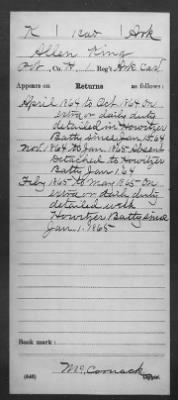 K | 1 Cav | Ark
Allen King
Pvt, Co. H, 1 Reg't Ark Cav
Appears on Returns as follows:
April 1864 to Oct 1864 On
extra or daily duty
detailed in Howitzer
Batty since Jan 1, 64
Nov 1864 to Jan 1865 Absent
Detached to Howitzer
Batty Jan 1, 64
Feby 1865 to Mar 1865 On
extra or daily duty
detailed with
Howitzer Batty since
Jan. 1. 1865
Book mark:
McCormack
(546) Copyist.